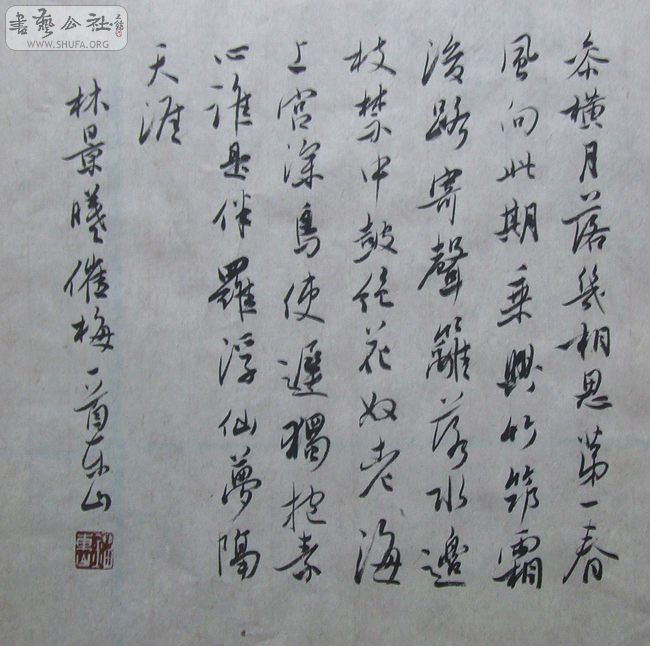 書藝公社
WWW.SHUFA.ORG
參橫月落幾相思第一春
風向此期乘興竹筇霜
後路寄聲籬落水邊
枝禁中鼓絕花奴老海
上宮深鳥使遲獨抱素
心誰是伴羅浮仙夢隔
天涯
林景曦催梅一首东山